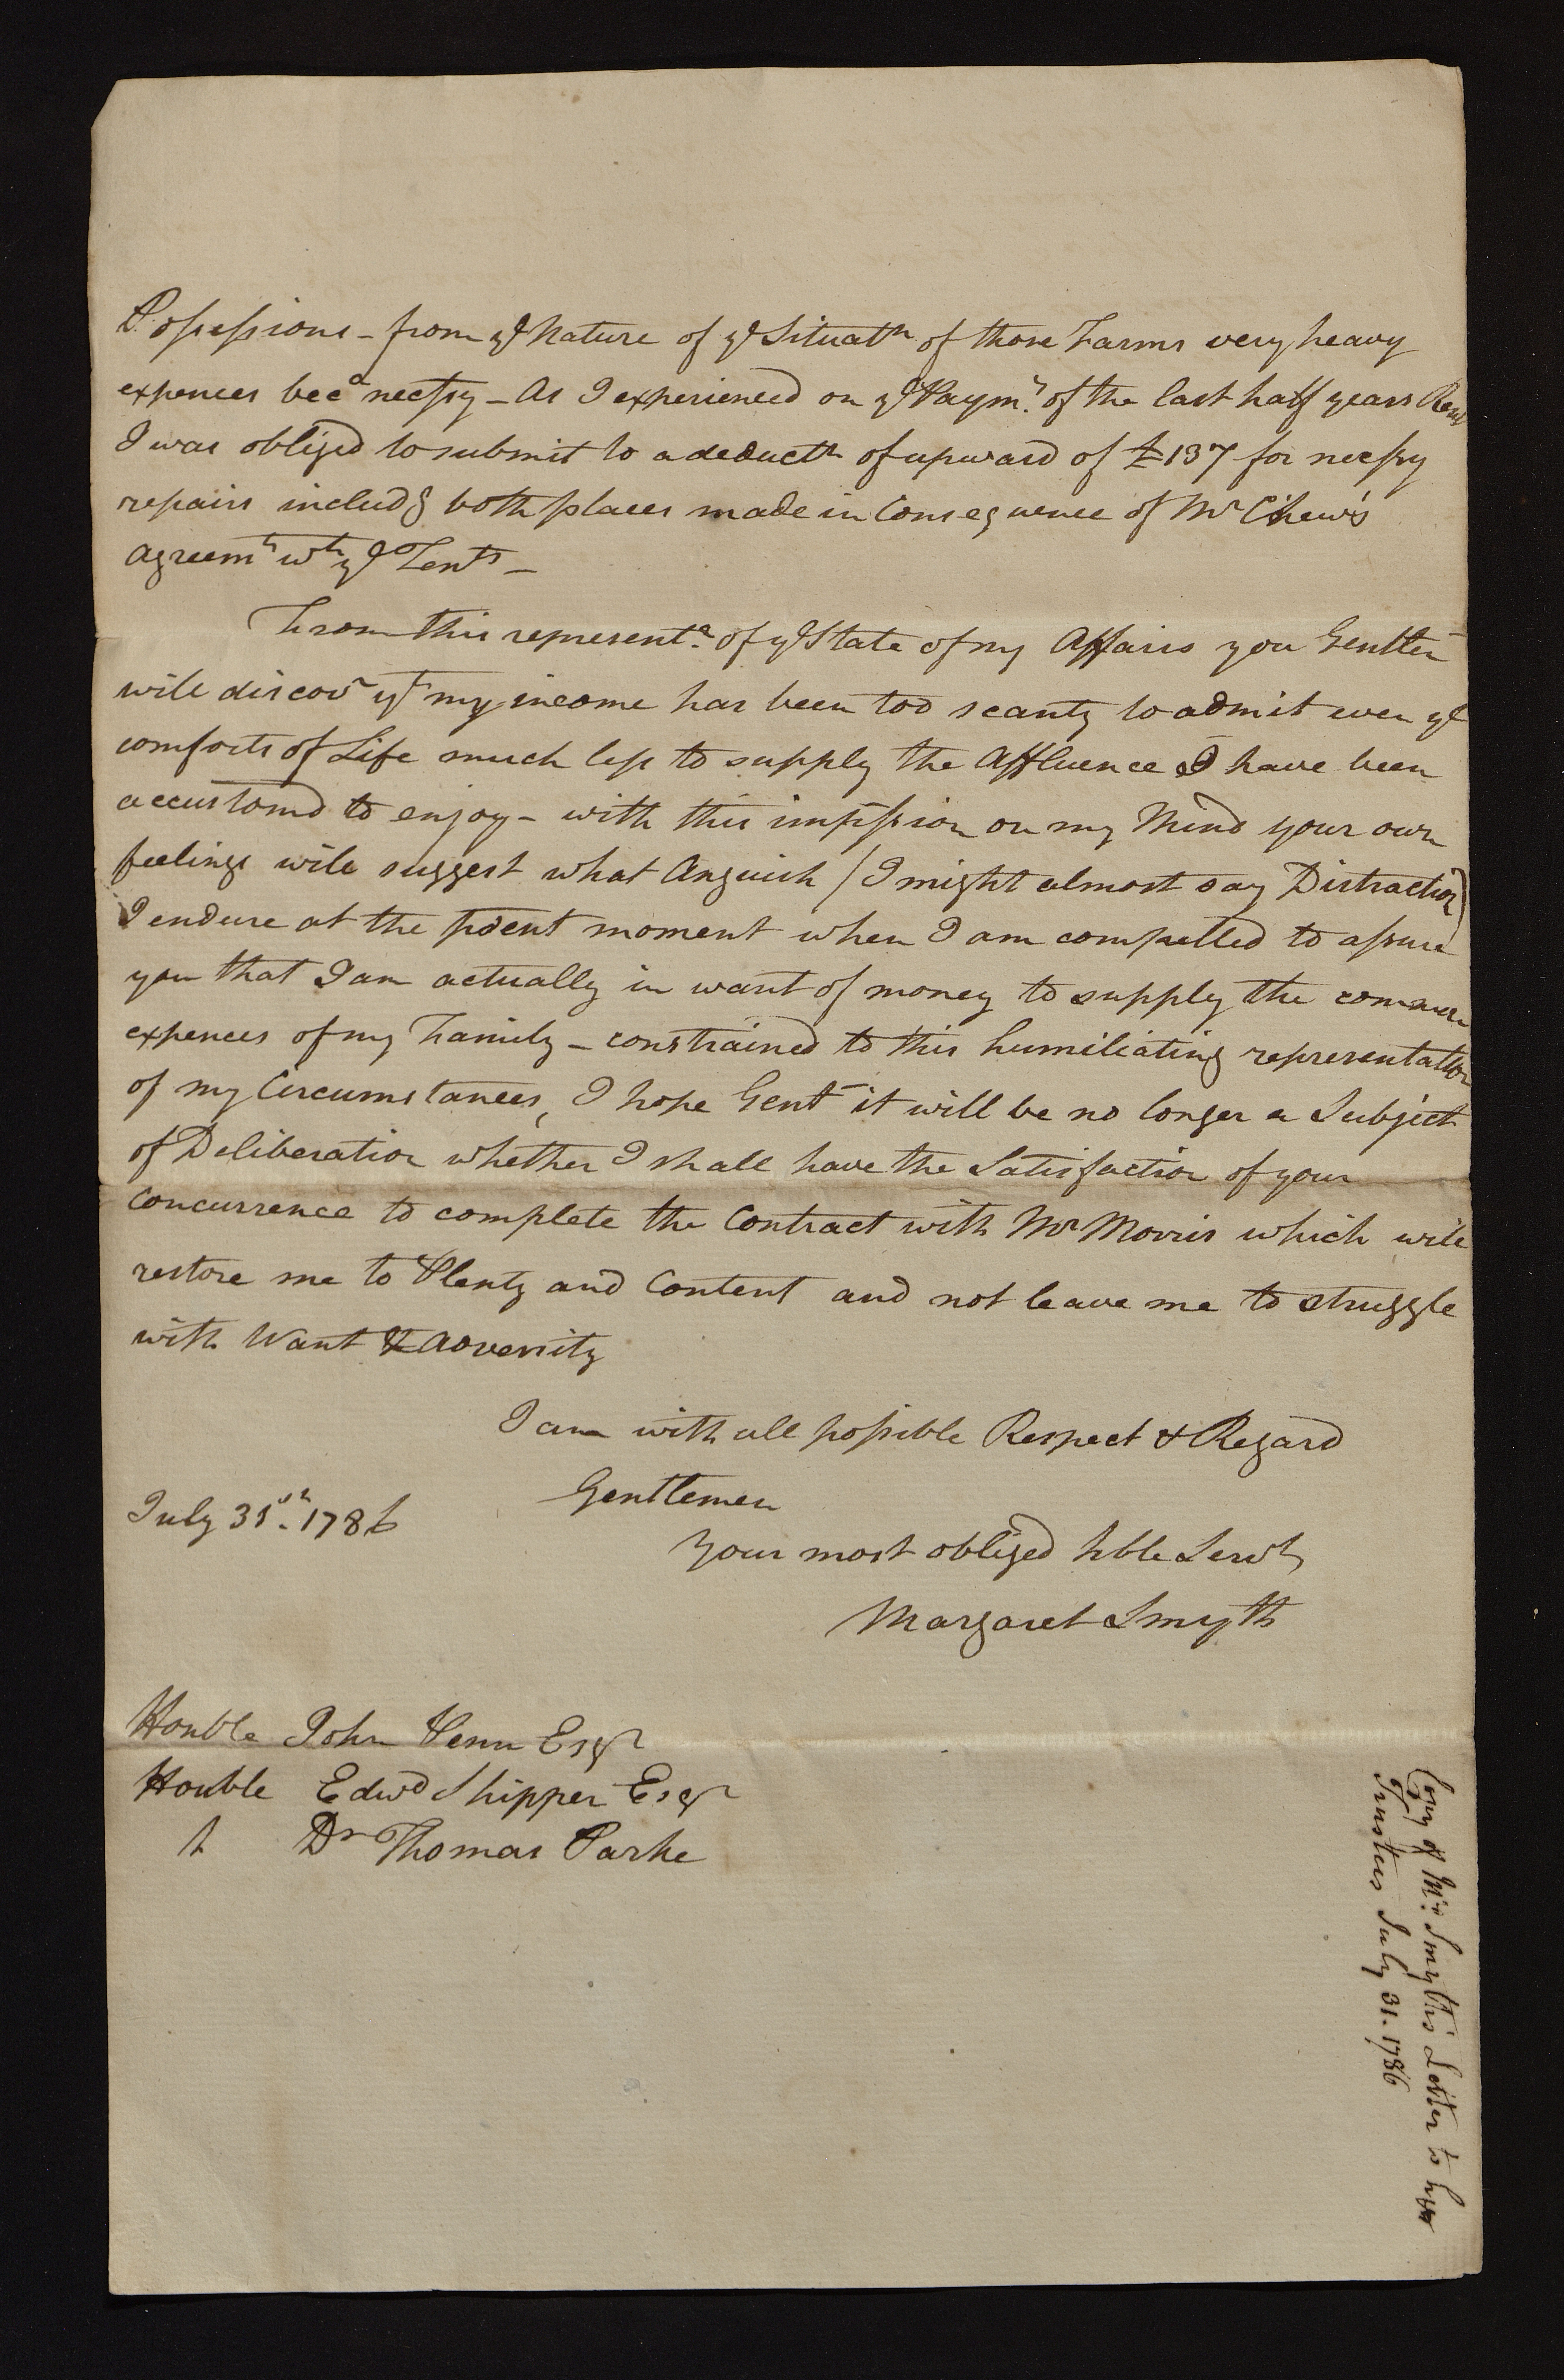 Possessions - from ye Nature of ye Situatn of those Farms very heavy
expences beca necessy - As I experienced on ye Paymt. of the last half years Rent
I was obliged to submit to a deductn of upward of £137 for necessy
repairs includg both places made in Consequence of Mr Chew's
Agreemt wth ye Tents -
From this representa. of ye State of my Affairs you Gentlen
will discovr yt my income has been too scanty to admit even ye
comforts of Life much less to supply the Affluence I have been
accustomd to enjoy - with this impression on my Mind your own
feelings will suggest what Anguish (I might almost say Distraction)
I endure at the present moment when I am compelled to assure
you that I am actually in want of money to supply the common
expences of my Family - constrained to this humiliating representation
of my Circumstances, I hope Gent it will be no longer a Subject
of Deliberation whether I shall have the Satisfaction of your
Concurrence to complete the Contract with Mr Morris which will
restore me to Plenty and Content and not leave me to struggle
with Want & Adversity
I am with all possible Respect & Regard
Gentlemen
July 31st. 1786
Your most obliged hble Servt
Margaret Smyth
Honble John Penn Esqr
Honble Edwd Shippen Esqr
& Dr Thomas Parke
Copy of Mrs Smyth's Letter to her
Trustees July 31. 1786